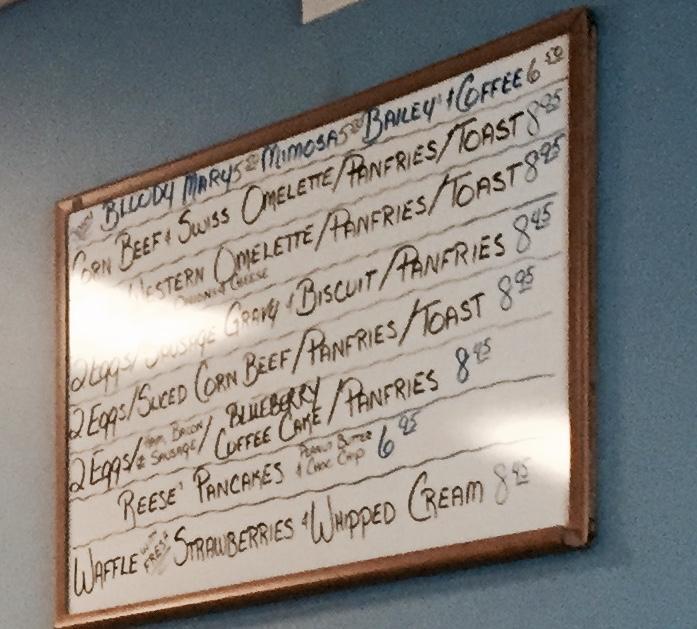 BLOODY MARYS 5 50 MIMOSAS 5 50 BAILEY'S & COFFEE 6 50
CORN BEEF & SWISS OMELETTE/PANFRIES/TOAST 8 95
WESTERN OMELETTE/PANFRIES/TOAST 8 95
ONIONS & CHEESE
2 EGGS/SAUSAGE GRAVY & BISCUIT/PANFRIES 8 45
2 EGGS/SLICED CORN BEEF/PANFRIES/TOAST 8 95
2 EGGS/HAM, BACON & SAUSAGE/BLUEBERRY COFFEE CAKE/PANFRIES 8 45
REESE' PANCAKES PEANUT BUTTER & CHOC CHIP 6 95
WAFFLE WITH FRESH STRAWBERRIES & WHIPPED CREAM 8 45